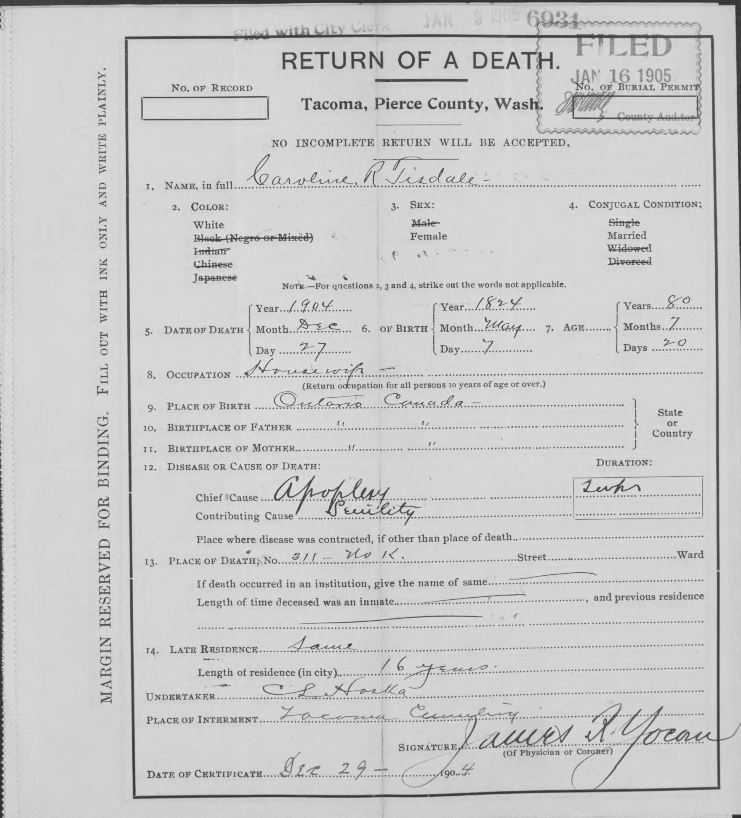 Filed with City Clerk JAN 9 1905 6931
RETURN OF A DEATH.
FILED
JAN 16 1905
County Auditor
NO. OF RECORD
NO. OF BURIAL PERMIT
Tacoma, Pierce County, Wash.
NO INCOMPLETE RETURN WILL BE ACCEPTED.
1. NAME, in full Caroline R Tisdale
2. COLOR: 3. SEX: 4. CONJUGAL CONDITION:
White Male Single
Black (Negro or Mixed) Female Married
Indian Widowed
Chinese Divorced
Japanese
NOTE.—For questions 2, 3 and 4, strike out the words not applicable.
Year 1904 Year 1824 Years 80
5. DATE OF DEATH Month Dec 6. OF BIRTH Month May 7. AGE Months 7
Day 27 Day 7 Days 20
8. OCCUPATION Housewife —
(Return occupation for all persons 10 years of age or over.)
9. PLACE OF BIRTH Ontario Canada —
10. BIRTHPLACE OF FATHER " "
11. BIRTHPLACE OF MOTHER " "
State or Country
12. DISEASE OR CAUSE OF DEATH: DURATION:
Chief Cause Apoplexy
Contributing Cause Senility
Place where disease was contracted, if other than place of death
13. PLACE OF DEATH; No. 311 — No K. Street Ward
If death occurred in an institution, give the name of same
Length of time deceased was an inmate , and previous residence
14. LATE RESIDENCE Same
Length of residence (in city) 16 years.
UNDERTAKER C L Hoska
PLACE OF INTERMENT Tacoma Cemetery
SIGNATURE, James R. Yocom
(Of Physician or Coroner)
DATE OF CERTIFICATE Dec 29 — 1904
MARGIN RESERVED FOR BINDING. FILL OUT WITH INK ONLY AND WRITE PLAINLY.